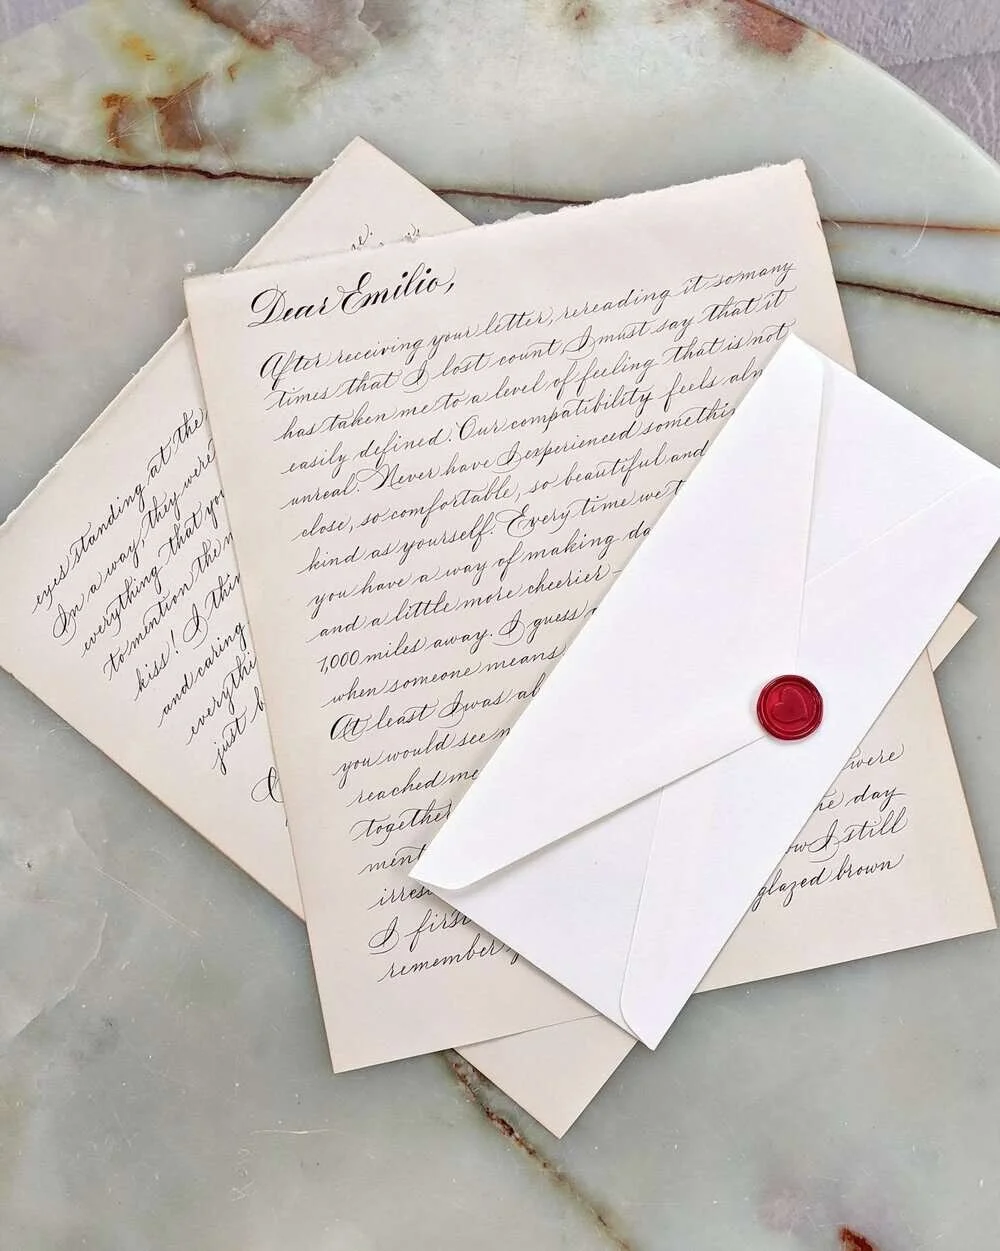 Dear Emilio,
After receiving your letter, rereading it so many
times that I lost count I must say that it
has taken me to a level of feeling that is not
easily defined. Our compatibility feels alm
unreal. Never have I experienced somethin
close, so comfortable, so beautiful and
kind as yourself. Every time we t
you have a way of making da
and a little more cheerier -
1,000 miles away. I guess
when someone means
At least I was al
you would see m
reached me
together
ment
irres
I first
remember
were
he day
ow I still
glazed brown
eyes standing at the
In a way, they were
everything that you
to mention the
kiss! I thin
and caring
everythi
just b